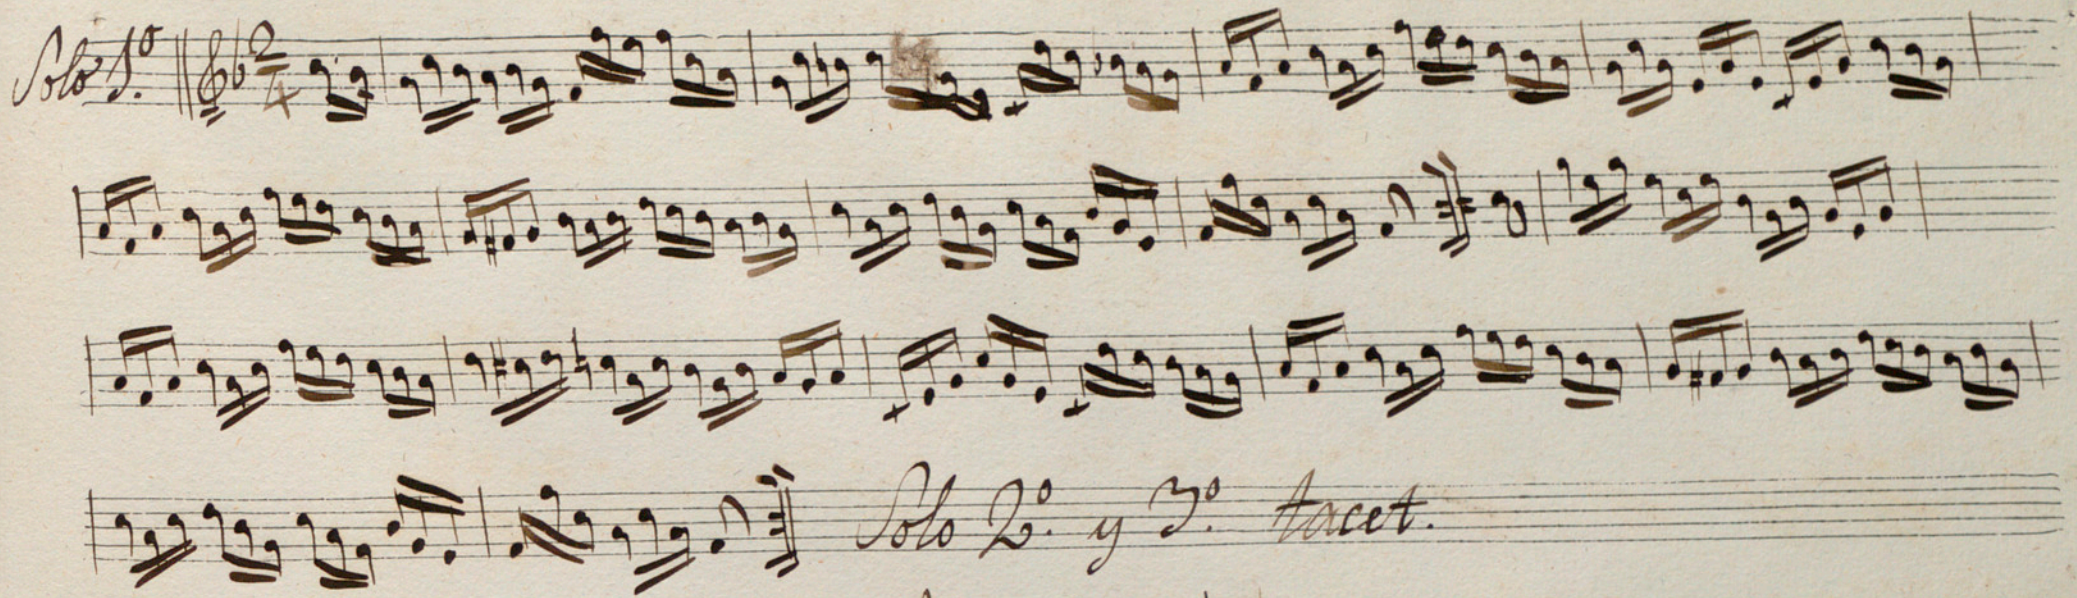 Solo 1.º 2/4
Solo 2.º y 3.º tacet.